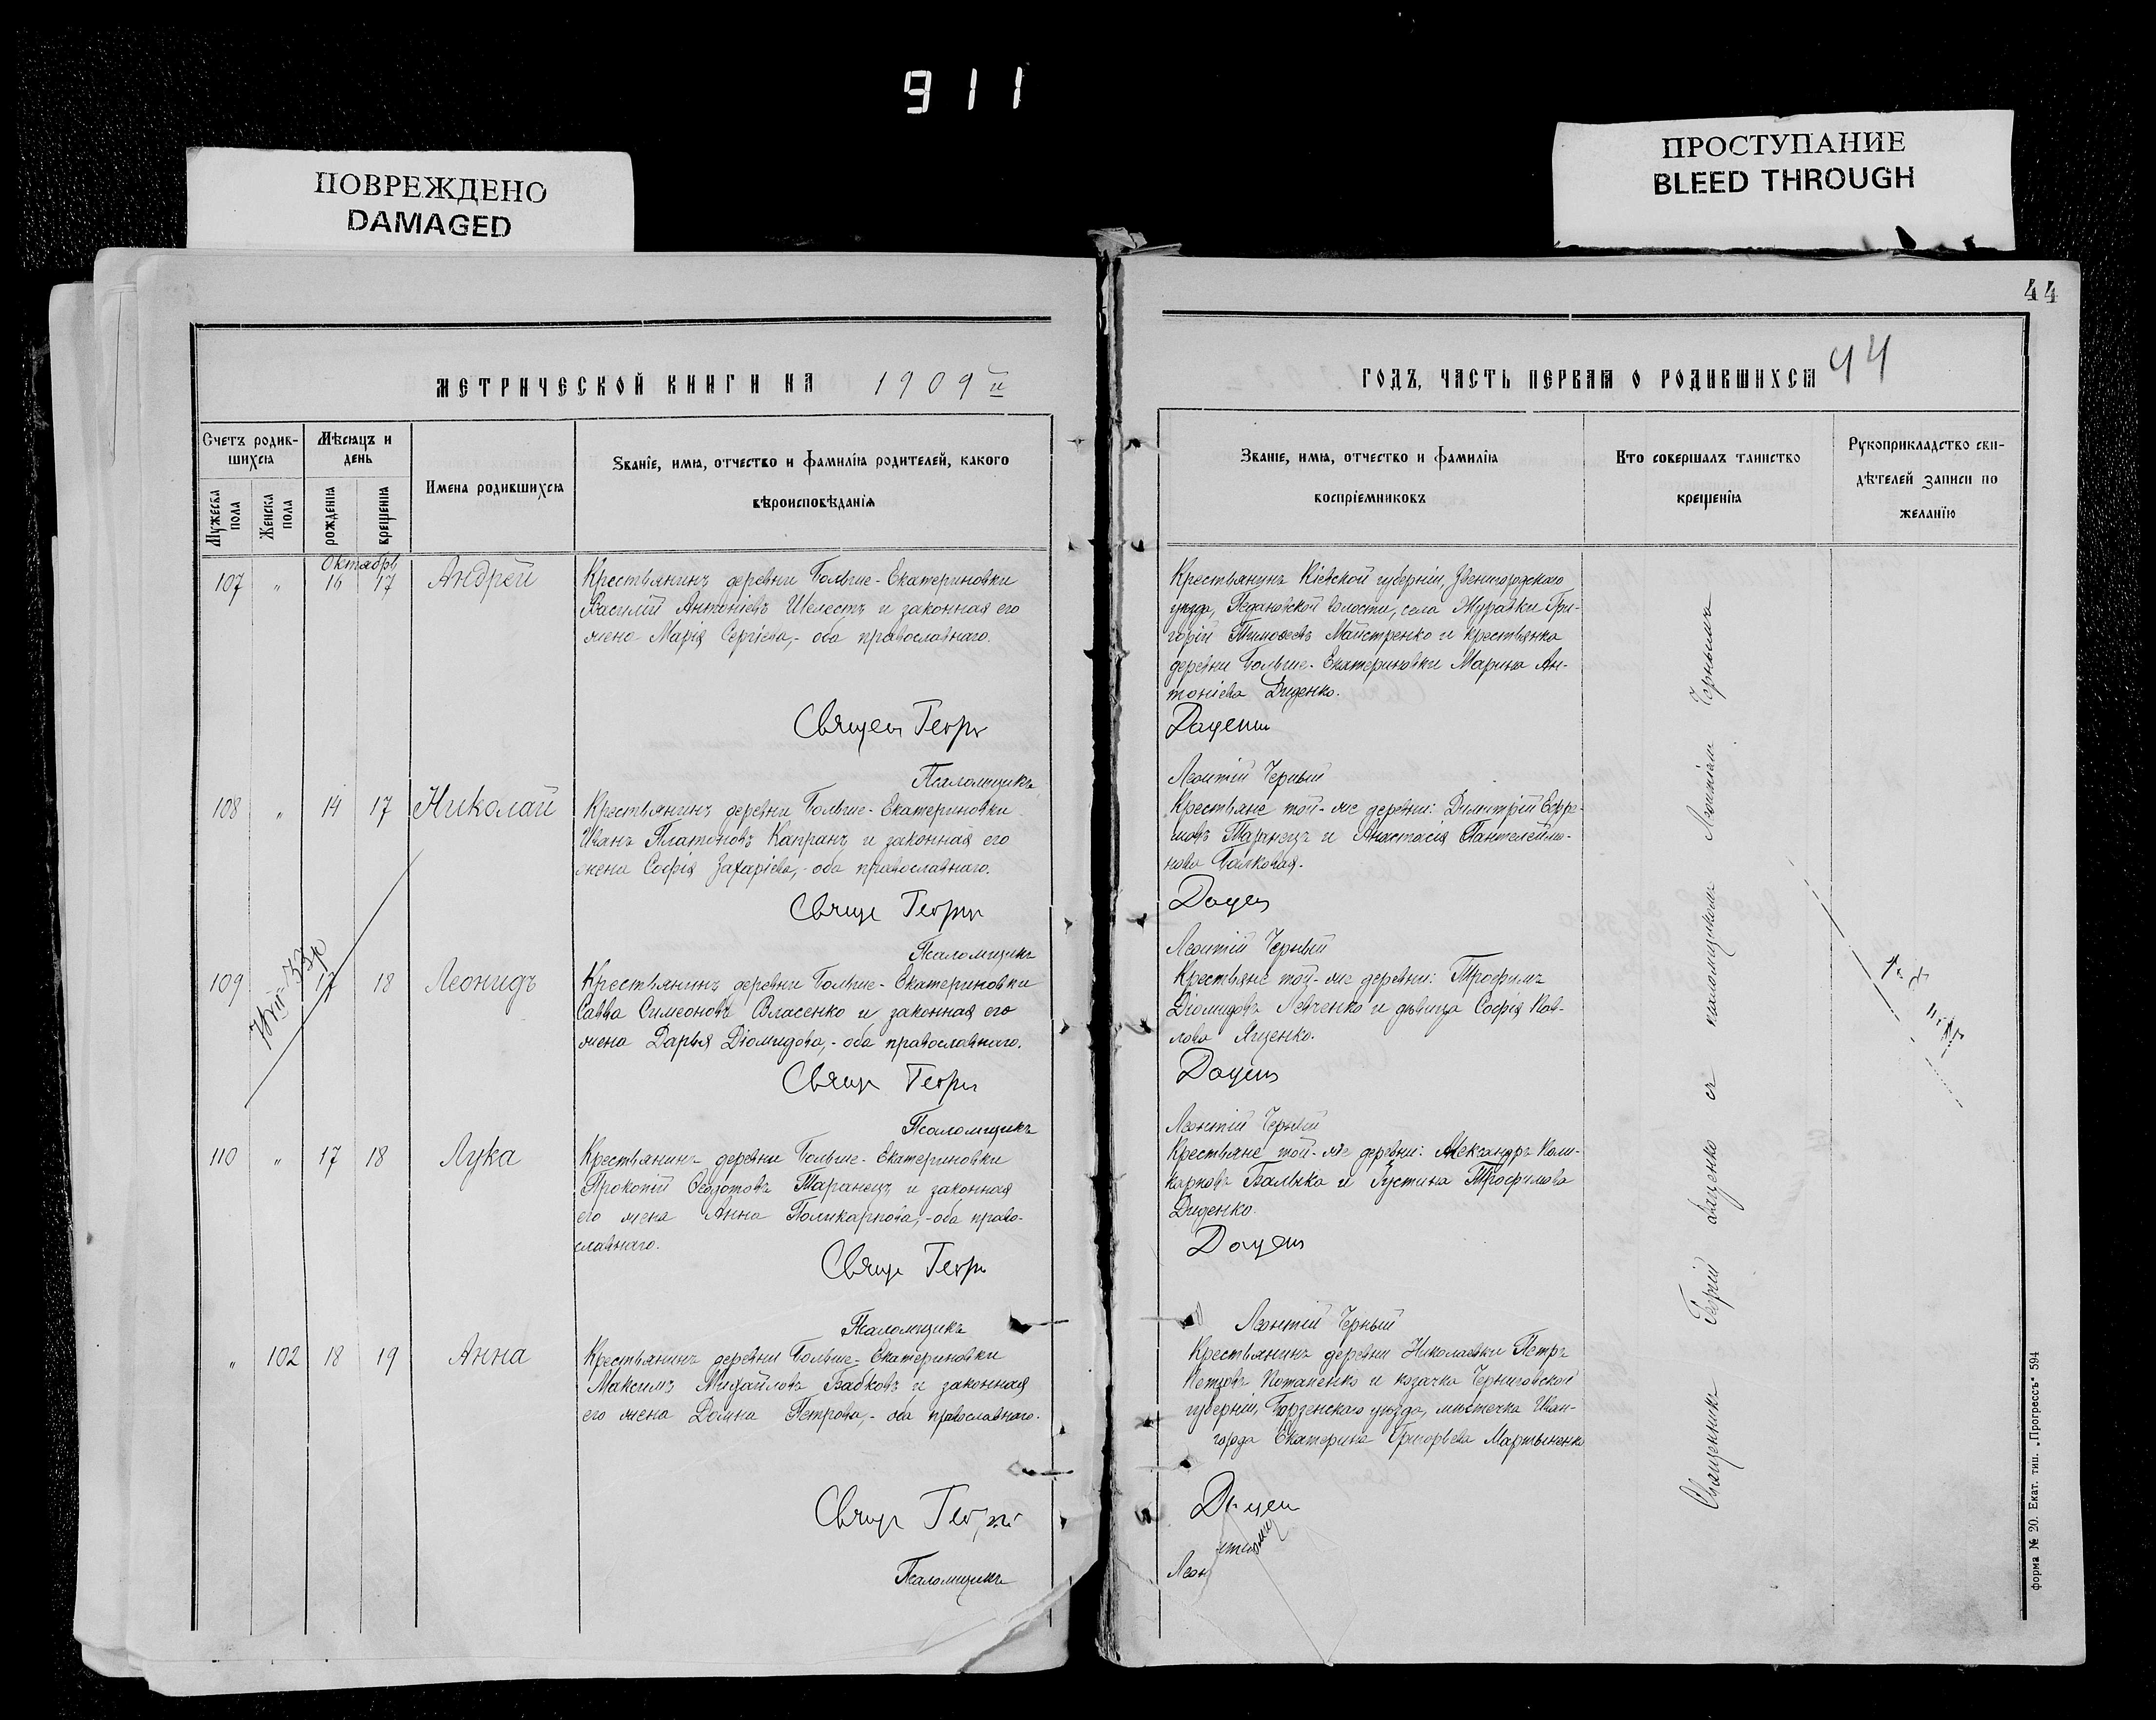 911
ПОВРЕЖДЕНО
DAMAGED
ПРОСТУПАНИЕ
BLEED THROUGH
МЕТРИЧЕСКОЙ КНИГИ НА 1909 й
Счетъ родив-
шихся
Мѣсяцъ и
день
Мужеска
пола
Женска
пола
рожденія
крещенія
Имена родившихся
Званіе, имя, отчество и фамилія родителей, какого
вѣроисповѣданія
Октябрь
107 " 16 17 Андрей
Крестьянинъ деревни Больше-Екатериновки
Василій Антоніевъ Шелестъ и законная его
жена Марія Сергіева,- оба православнаго.
Священ Георг
Псаломщикъ
108 " 14 17 Николай
Крестьянинъ деревни Больше-Екатериновки
Иванъ Платоновъ Капранъ и законная его
жена Софія Захаріева,- оба православнаго.
Свящ Георг
Псаломщикъ
109 17 18 Леонидъ
Крестьянинъ деревни Больше-Екатериновки
Савва Симеоновъ Власенко и законная его
жена Дарья Діомидова,- оба православнаго.
Свящ Георг
Псаломщикъ
110 " 17 18 Лука
Крестьянинъ деревни Больше-Екатериновки
Прокопій Ѳеодотовъ Таранецъ и законная
его жена Анна Поликарпова,- оба право-
славнаго.
Свящ Георг
Псаломщикъ
" 102 18 19 Анна
Крестьянинъ деревни Больше-Екатериновки
Максимъ Михайловъ Бабковъ и законная
его жена Домна Петрова,- оба православнаго.
Свящ Георгі
Псаломщикъ
44
ГОДЪ, ЧАСТЬ ПЕРВАЯ О РОДИВШИХСЯ 44
Званіе, имя, отчество и фамилія
воспріемниковъ
Кто совершалъ таинство
крещенія
Рукоприкладство сви-
дѣтелей записи по
желанію
Крестьянинъ Кіевской губерніи, Звенигородскаго
уѣзда, Педановской волости, села Журавки Гри-
горій Тимоѳеевъ Майстренко и крестьянка
деревни Больше-Екатериновки Марина Ан-
тоніева Диденко.
Даценко
Леонтій Черный
Крестьяне той-же деревни: Димитрій Ефре-
мовъ Таранецъ и Анастасія Пантелеймо-
нова Балковая.
Дацен
Леонтій Черный
Крестьяне той-же деревни: Трофимъ
Діомидовъ Левченко и дѣвица Софія Пав-
лова Яценко.
Дацен
Леонтій Черный
Крестьяне той-же деревни: Александръ Поли-
карповъ Балыка и Іустина Трофимова
Диденко.
Дацен
Леонтій Черный
Крестьянинъ деревни Николаевки Петръ
Петровъ Потапенко и козачка Черниговской
губерніи, Борзенскаго уѣзда, мѣстечка Иван-
города Екатерина Григорьева Мартыненко
Дацен
Леон
Священникъ Георгій Даценко съ псаломщикомъ Леонтіемъ Чернымъ
форма № 20. Екат. тип. „Прогрессъ“ 594